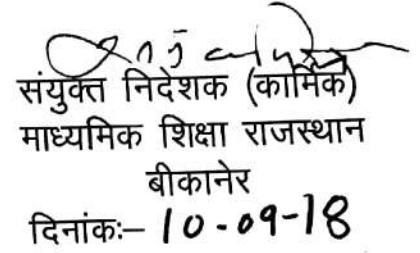 संयुक्त निदेशक (कार्मिक)
माध्यमिक शिक्षा राजस्थान
बीकानेर
दिनांकः– 10-09-18